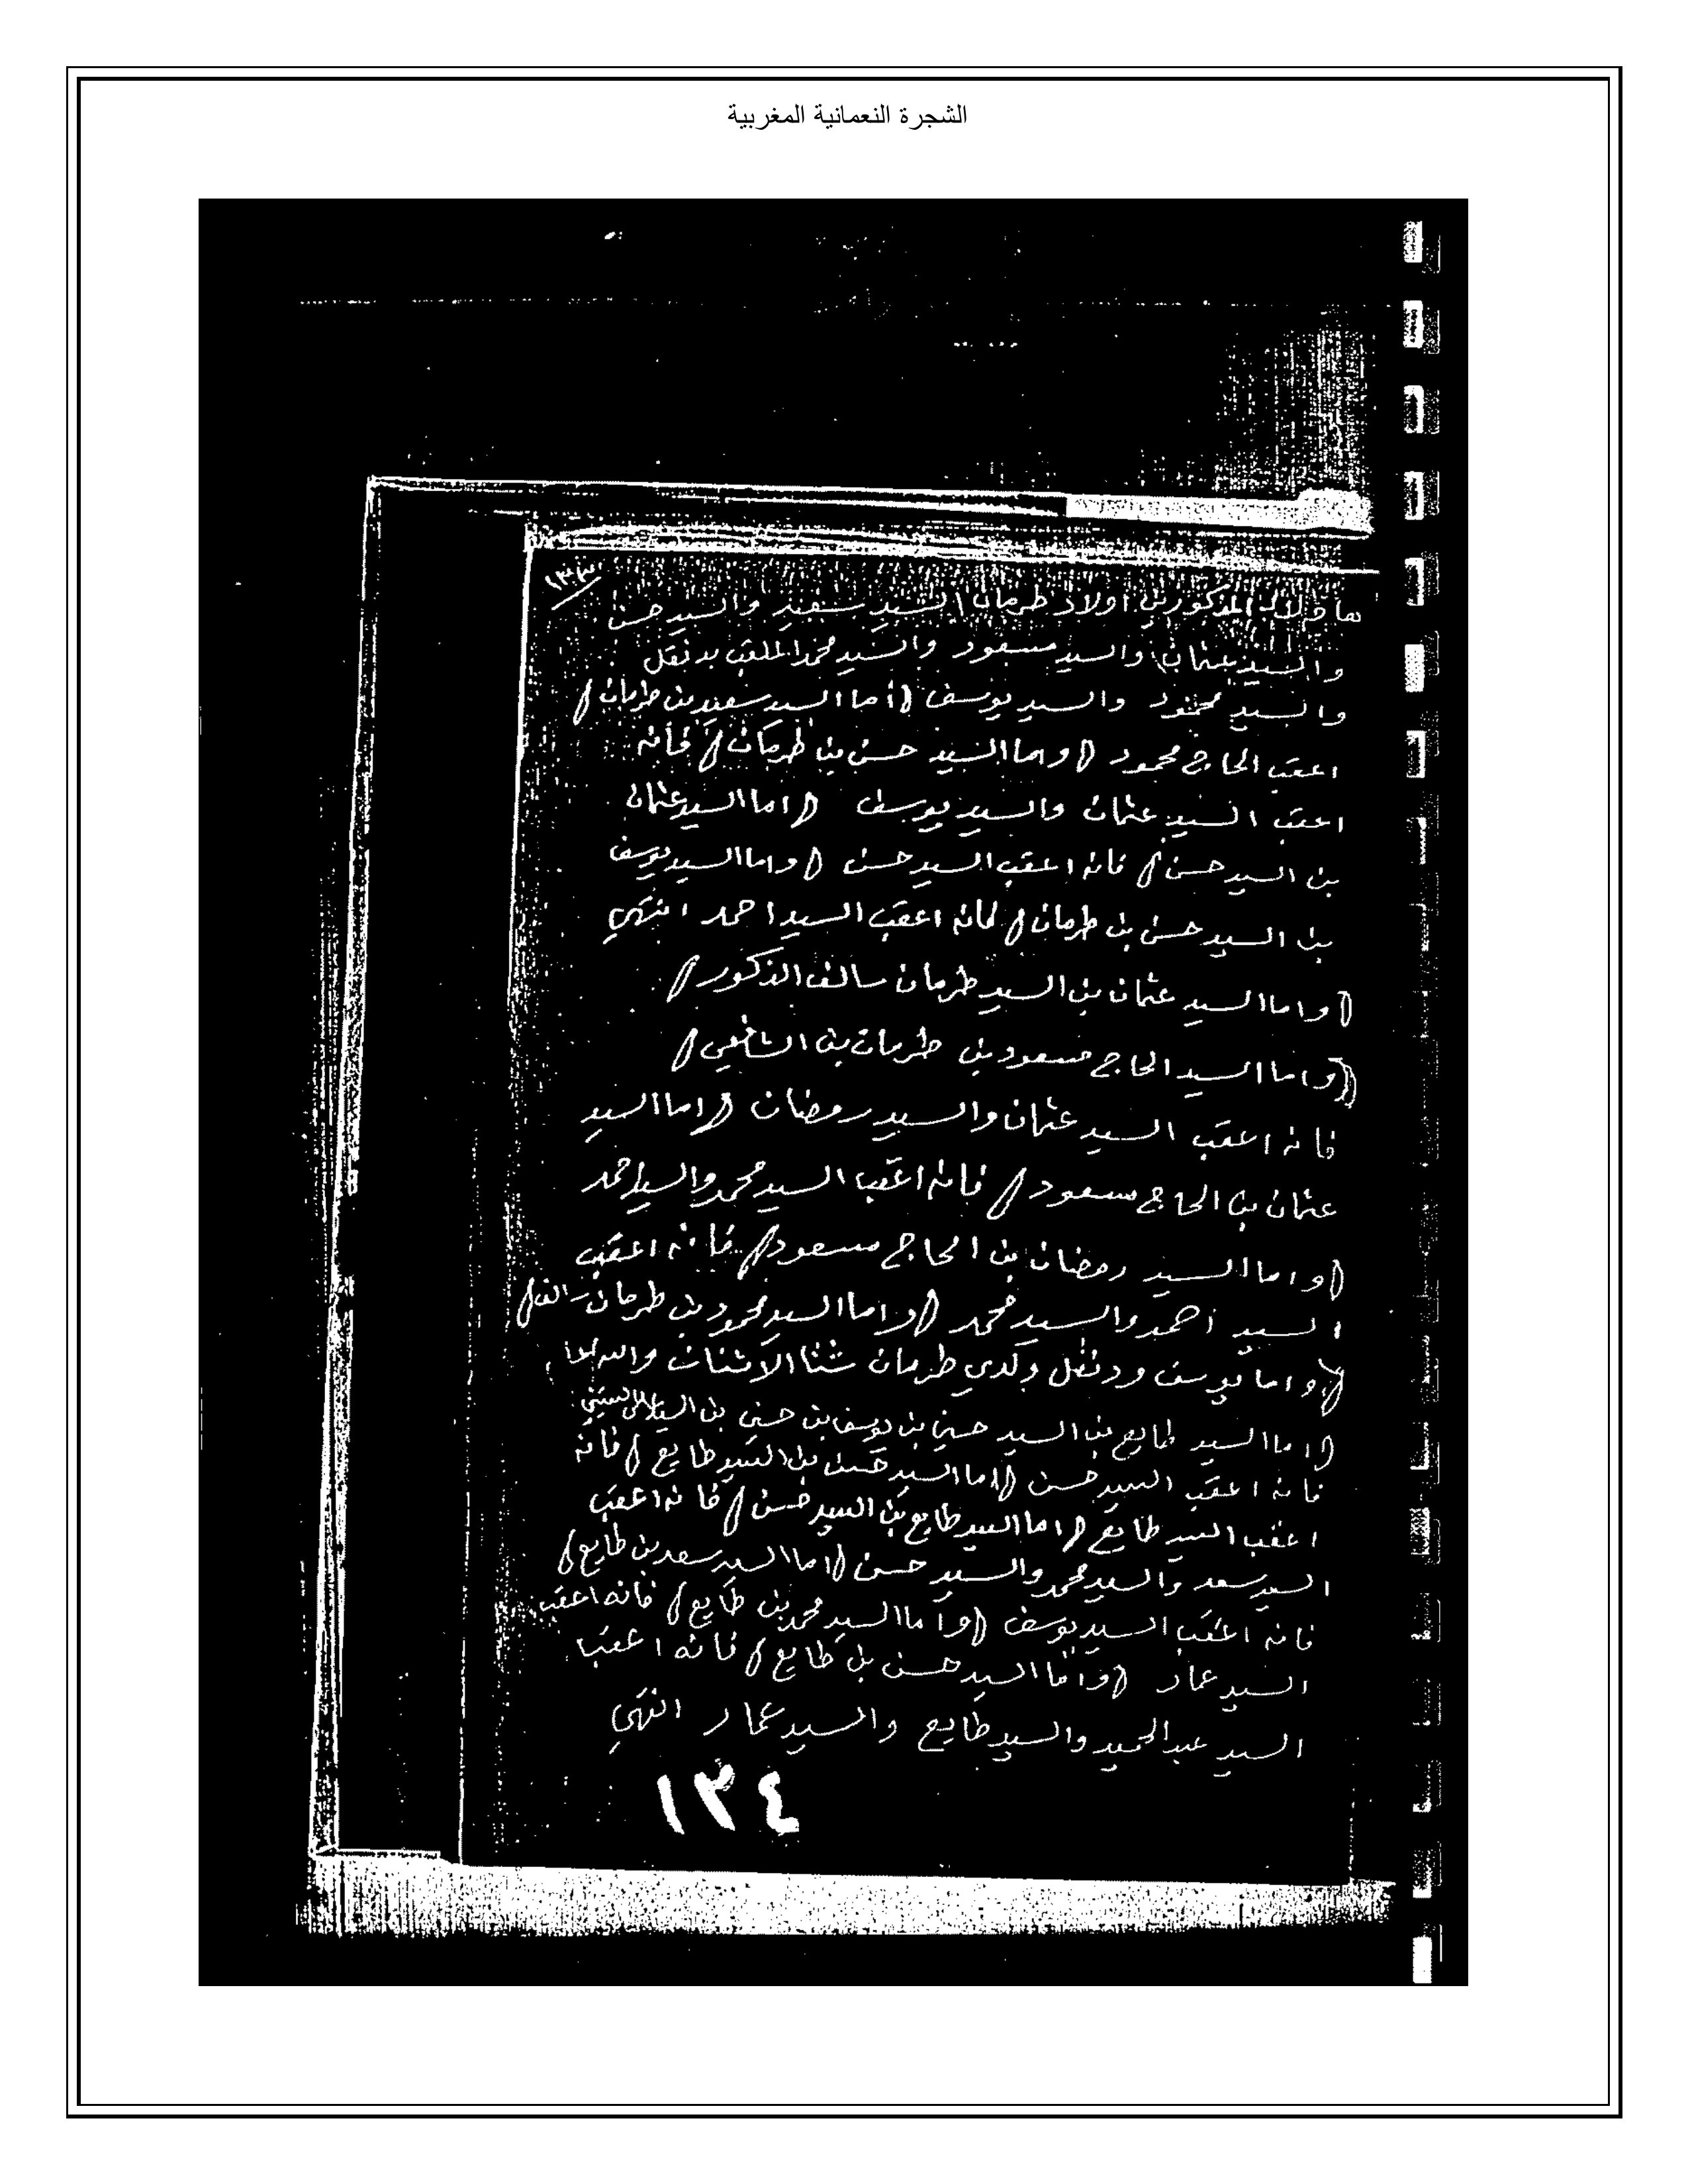 الشجرة النعمانية المغربية
١٣٣
المذكورين اولاد طرمان السيد سعيد والسيد حسن
والسيد عثمان والسيد مسعود والسيد محمد الملقب بدنقل
والسيد محمود والسيد يوسف (اما السيد سعيد بن طرمان)
اعقب الحاج محمود (واما السيد حسن بن طرمان) فانه
اعقب السيد عثمان والسيد يوسف (اما السيد عثمان
بن السيد حسن) فانه اعقب السيد حسن (واما السيد يوسف
بن السيد حسن بن طرمان) فانه اعقب السيد احمد انتهي
(واما السيد عثمان بن السيد طرمان سالف الذكور)
((واما السيد الحاج مسعود بن طرمان بن الشافعي)
فانه اعقب السيد عثمان والسيد رمضان (اما السيد
عثمان بن الحاج مسعود) فانه اعقب السيد محمد والسيد احمد
(واما السيد رمضان بن الحاج مسعود) فانه اعقب
السيد احمد والسيد محمد (واما السيد محمود بن طرمان
(واما يوسف ودنقل ولدي طرمان
(اما السيد طايع بن السيد حسين بن يوسف بن حسين بن السيد
فانه اعقب السيد حسن (اما السيد حسن بن السيد طايع) فانه
اعقب السيد طايع (اما السيد طايع بن السيد حسن) فانه اعقب
السيد سعد والسيد محمد والسيد حسن (اما السيد سعد بن طايع)
فانه اعقب السيد يوسف (واما السيد محمد بن طايع) فانه اعقب
السيد عمار (واما السيد حسن بن طايع) فانه اعقب
السيد عبد الحميد والسيد طايع والسيد عمار انتهي
١٣٤